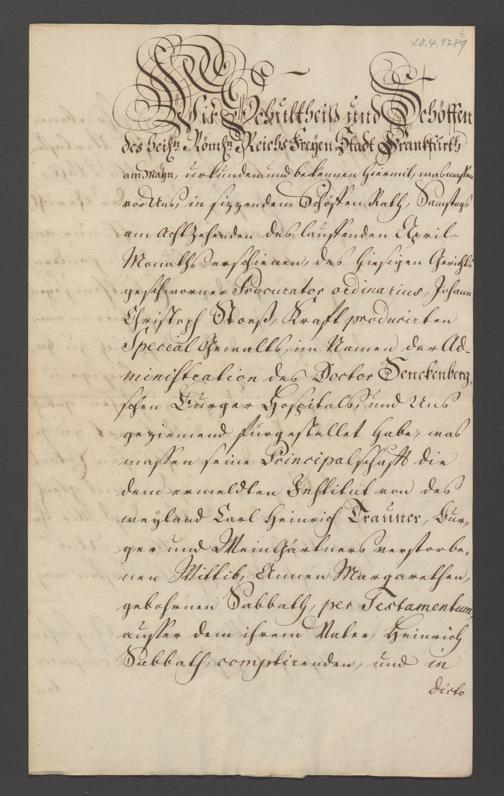 20.4.1789
Wir Schultheiß und Schöffen
des heil: Römn: Reichs Freyen Stadt Franckfurth
am Mayn, urkunden und bekennen hiermit, was massen
vor Uns, in sizzendem Schöffen Rath, Samstags
am Achtzehenden des lauffenden April-
Monaths erschienen, des hiesigen Gerichts
geschworner Procurator ordinarius, Johann
Christoph Stoess, Kraft producirten
Special Gewalts, im Namen der Ad-
ministration des Doctor Senckenberg,
schen Burger Hospitals, und Uns
geziemend furgestellet habe, was
massen seine Principalschafft die
dem ermeldten Institut von des
weyland Carl Heinrich Trauner, Bur-
ger und Weingärtners verstorbe-
nen Wittib, Annen Margarethen,
gebohrnen Sabbath, per Testamentum,
ausser dem ihrem Vater, Heinrich
Sabbath, competirenden, und in
dicto